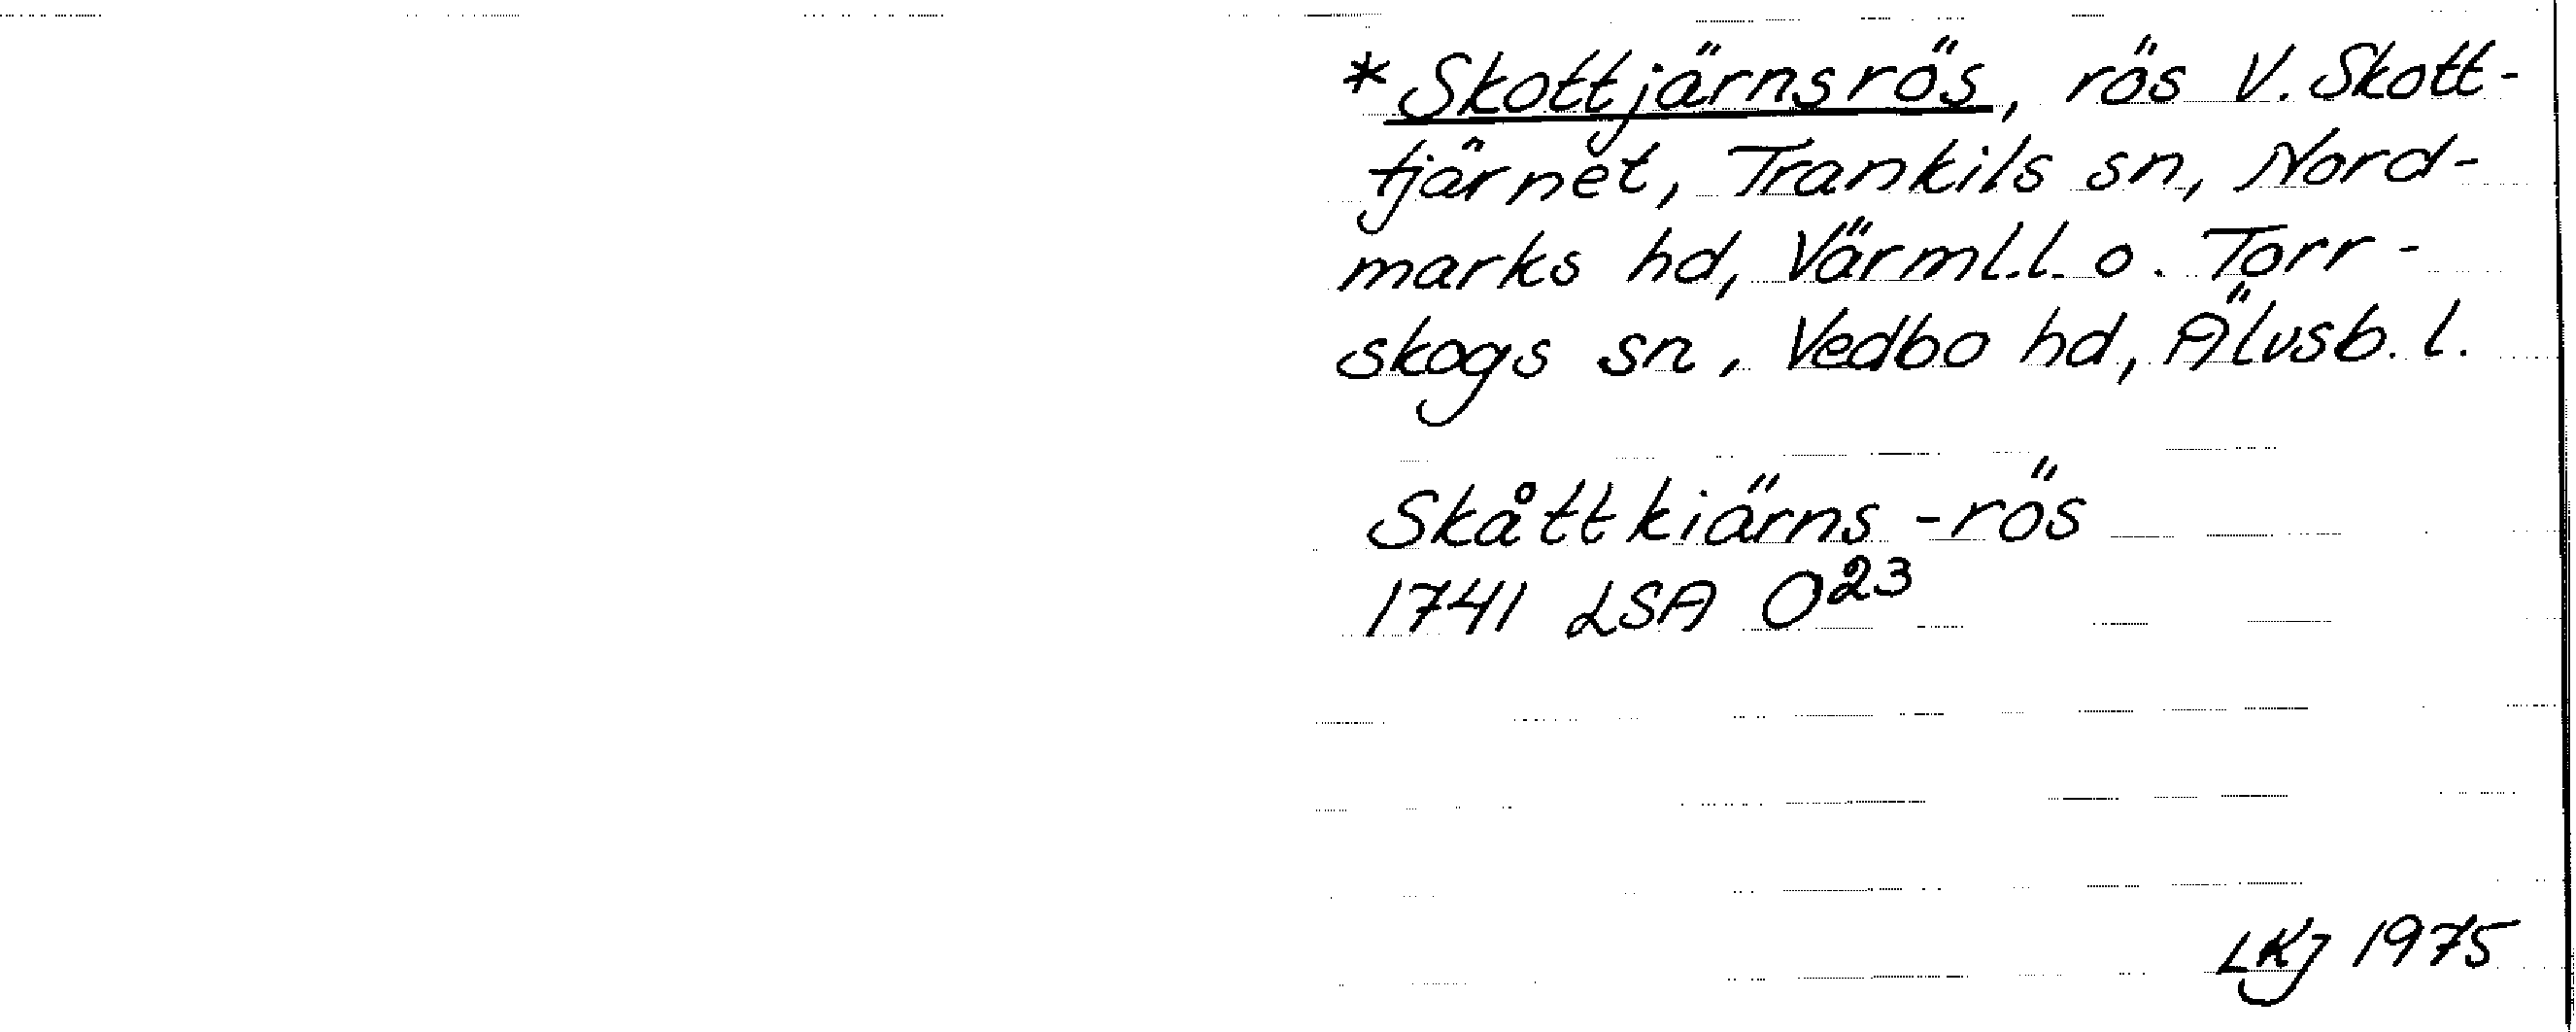 *Skottjärnsrös, rös V. Skott-
tjärnet, Trankils sn, Nord-
marks hd, Värml.l. o. Torr-
skogs sn, Vedbo hd, Älvsb. l.
Skåttkiärns-rös
1741 LSA O²³
LKJ 1975